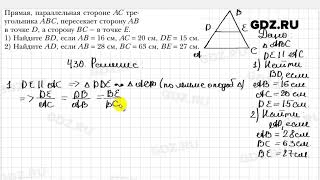 Прямая, параллельная стороне AC тре-
угольника ABC, пересекает сторону AB
в точке D, а сторону BC – в точке E.
1) Найдите BD, если AB = 16 см, AC = 20 см, DE = 15 см.
2) Найдите AD, если AB = 28 см, BC = 63 см, BE = 27 см.
GDZ.RU
B
D
E
A
C
Дано
△ABC
DE ∥ AC
1) Найти
BD, если
AB = 16 см
AC = 20 см
DE = 15 см
2) Найти
AD, если
AB = 28 см
BC = 63 см
BE = 27 см
430. Решение
1. DE ∥ AC ⇒
=> DE/AC = DB/AB = BE/BC
GDZ.RU